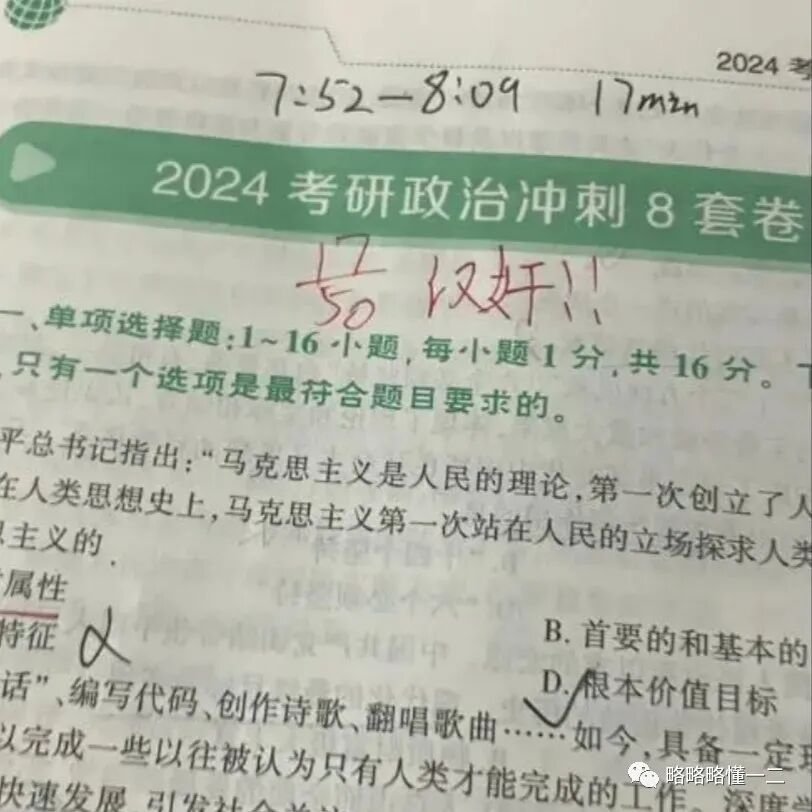 2024 考
7:52—8:09 17min
2024 考研政治冲刺 8 套卷
17/50 汉奸!!
一、单项选择题:1~16 小题,每小题 1 分,共 16 分。下
只有一个选项是最符合题目要求的。
平总书记指出:“马克思主义是人民的理论,第一次创立了人
在人类思想史上,马克思主义第一次站在人民的立场探求人类
思主义的
属性
B. 首要的和基本的
特征
D. 根本价值目标
话”、编写代码、创作诗歌、翻唱歌曲……如今,具备一定
以完成一些以往被认为只有人类才能完成的工作。深度
快速发展,引发社会
略略略懂一二